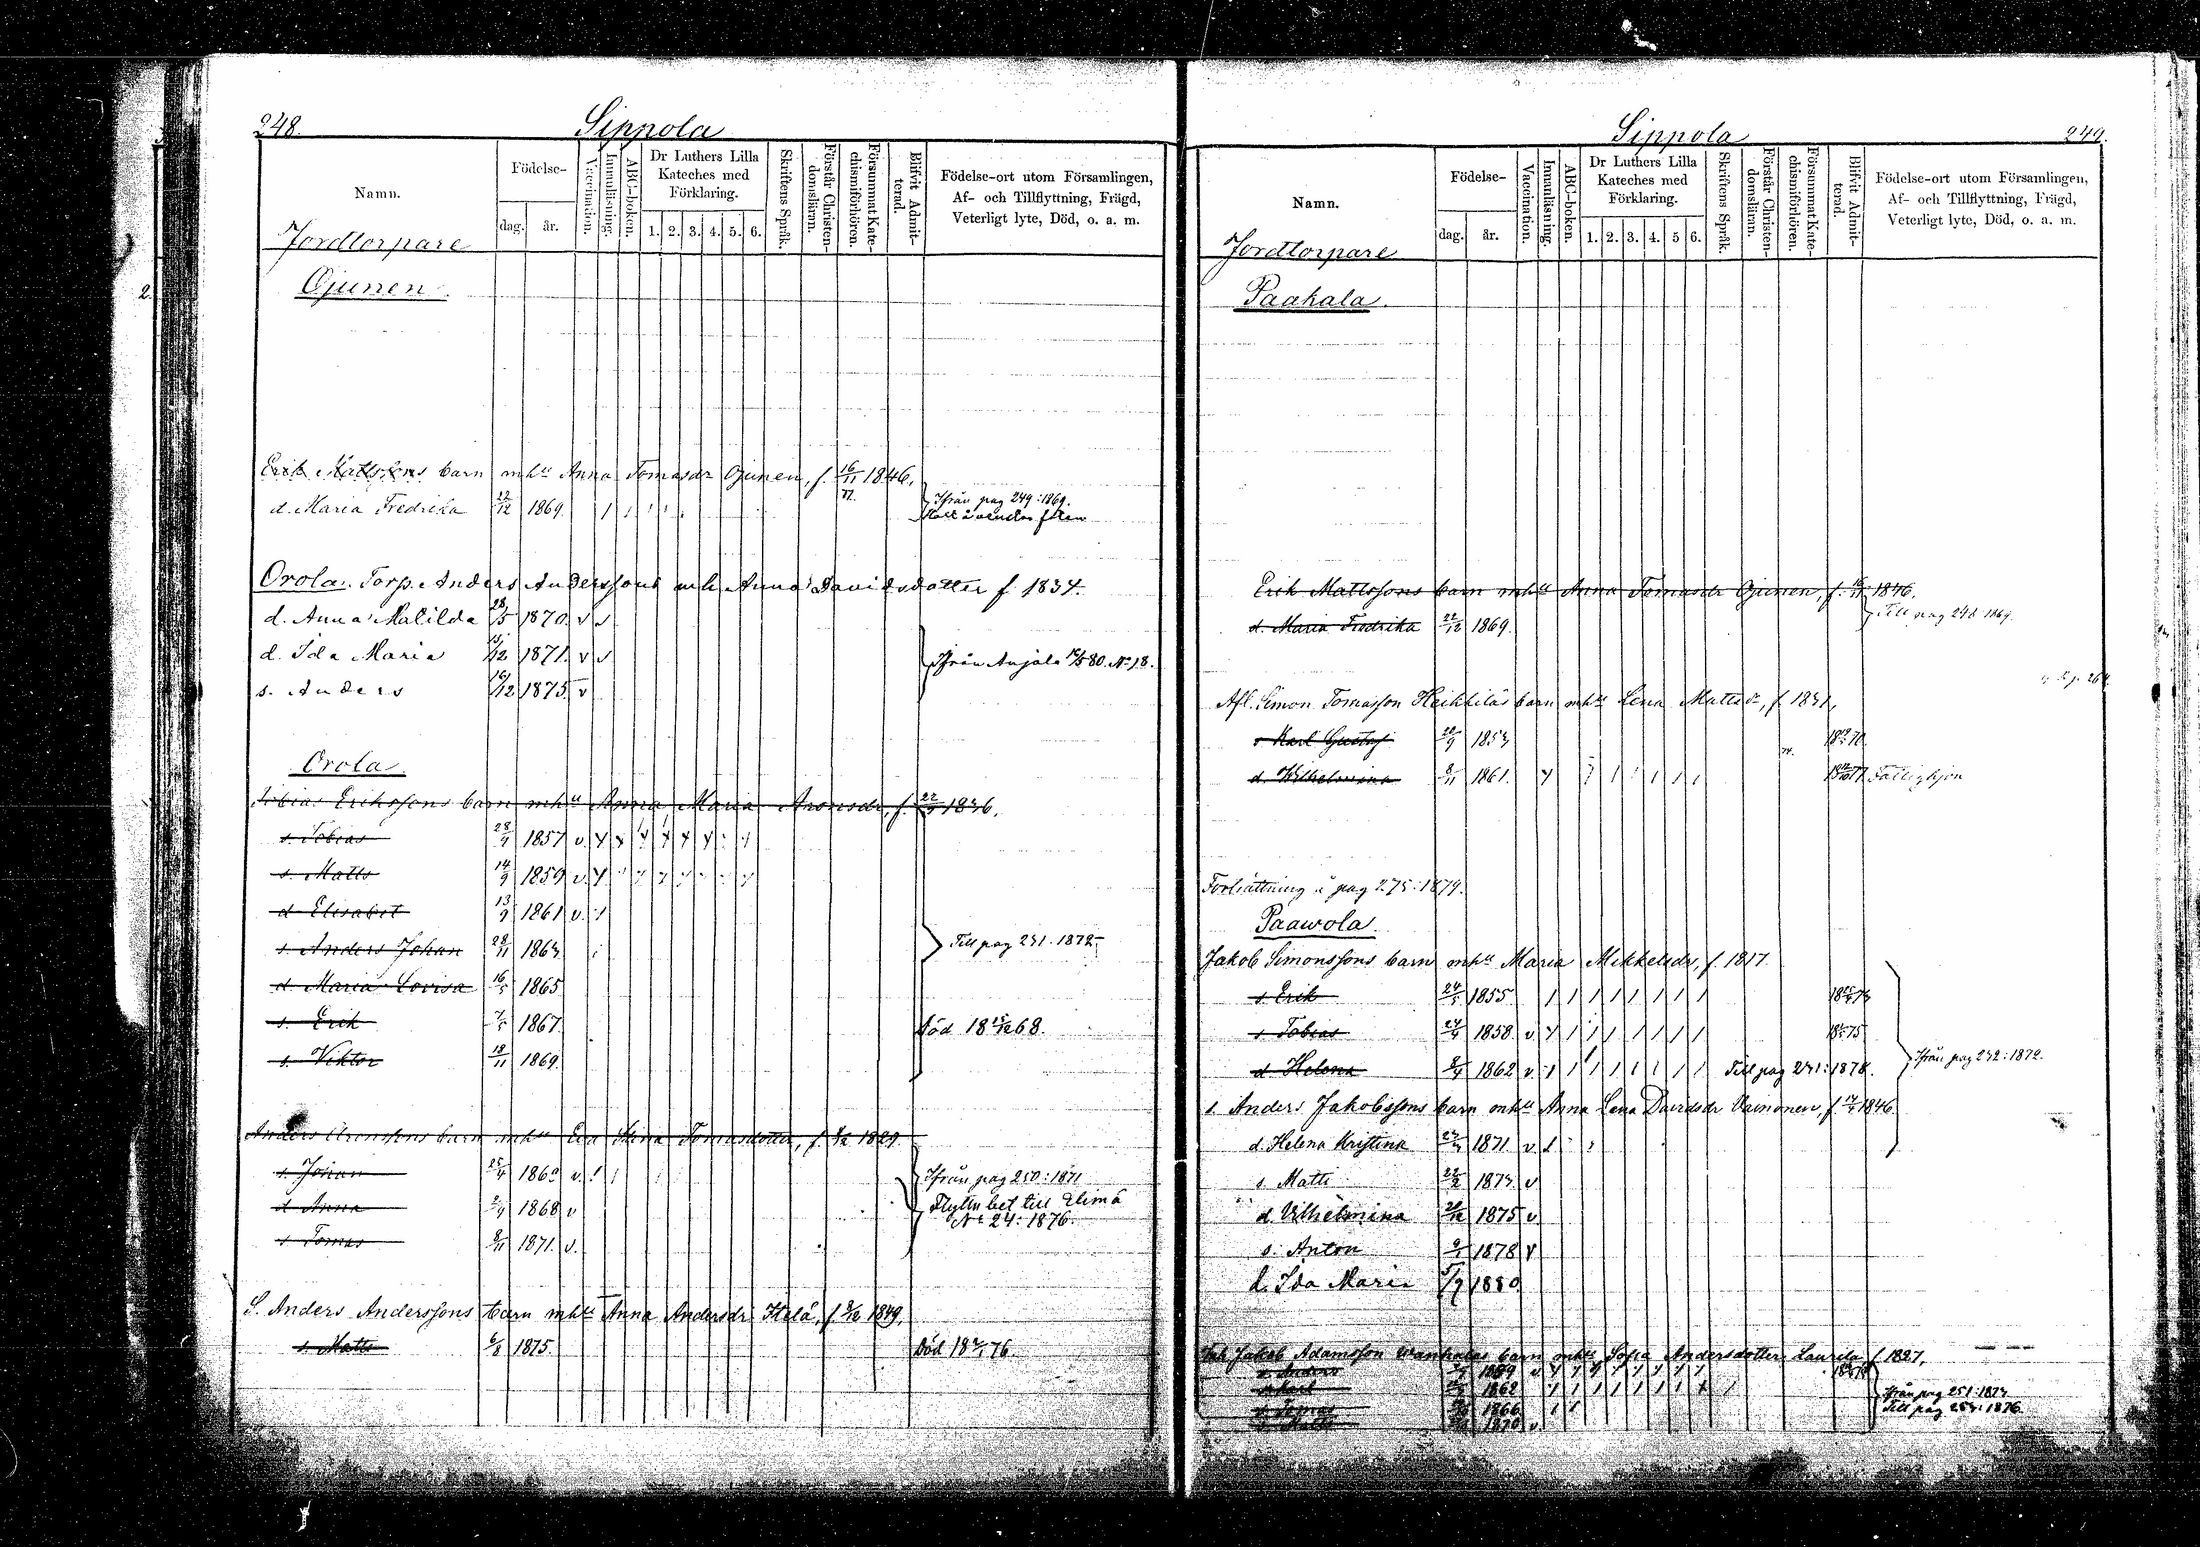 248.
Sippola
Namn.
Födelse-
dag.
år.
Vaccination.
Innanläsning.
ABC-boken.
Dr Luthers Lilla
Kateches med
Förklaring.
1. 2. 3. 4. 5. 6.
Skriftens Språk.
Förstår Christen-
domsläran.
Försummat Kate-
chismiförhören.
Blifvit Admit-
terad.
Födelse-ort utom Församlingen,
Af- och Tillflyttning, Frägd,
Veterligt lyte, Död, o. a. m.
Jordtorpare
Ojunen.
Erik Mattssons barn mhu Anna Tomasdr Ojunen, f. 16/11 1846.
d. Maria Fredrika 22/12 1869. Ifrån pag 249: 1869.
Orola. Torp. Anders Anderssons mh Anna Davidsdotter f 1834.
d. Anna Matilda 28/5 1870. v
d. Ida Maria 15/12 1871. v Ifrån Anjala 10/5 80. No 18.
s. Anders 16/12 1875. v
Orola
Tobias Erikssons barn mhu Anna Maria Aronsdr, f. 1836.
s. Tobias 28/9 1857 v
s. Matts 14/9 1859 v
d Elisabet 13/9 1861 v
s. Anders Johan 28/11 1863 Till pag 231. 1872
d. Maria Lovisa 16/5 1865
s. Erik 7/5 1867. Död 18 15/12 68.
s. Viktor 18/11 1869.
Anders Aronssons barn mhu Eva Stina Tomasdotter, f. 1829.
s. Johan 25/4 1860 v. Ifrån pag 250: 1871
d Anna 2/9 1868 v Flyttn bet till Elimä
No 24: 1876.
s Tomas 8/11 1871. v.
S. Anders Anderssons barn mhu Anna Andersdr Itelä, f 9/12 1849.
s. Matts 6/8 1875. Död 18 76
Sippola
249.
Namn.
Födelse-
dag.
år.
Vaccination.
Innanläsning.
ABC-boken.
Dr Luthers Lilla
Kateches med
Förklaring.
1. 2. 3. 4. 5 6.
Skriftens Språk.
Förstår Christen-
domsläran.
Försummat Kate-
chismiförhören.
Blifvit Admit-
terad.
Födelse-ort utom Församlingen,
Af- och Tillflyttning, Frägd,
Veterligt lyte, Död, o. a. m.
Jordtorpare
Paakala.
Erik Mattssons barn mhu Anna Tomasdr Ojunen, f. 16/11 1846.
d. Maria Fredrika 22/12 1869. Till pag 248 1869.
Afl. Simon Tomasson Heikkiläs barn mhu Lena Mattsdr, f 1831,
s Karl Gustaf 20/9 1853
d. Wilhelmina 8/11 1861. Fattighjon
Fortsättning å pag 275: 1879.
Paawola.
Jakob Simonssons barn mhu Maria Mikkelsdr, f. 1817
s Erik 24/5 1855
s Tobias 24/4 1858 v
d Helena 8/4 1862 v Till pag 231: 1878. Ifrån pag 232: 1872.
s. Anders Jakobssons barn mhu Anna Lena Davidsdr Vainonen, f 1846
d. Helena Kristina 1871 v
s. Matti 22/2 1873. v
d. Vilhelmina 1875 v
s. Anton 1878 v
d. Ida Maria 5/9 1880.
Jakob Adamsson Wanhalas barn mhu Sofia Andersdotter Laurela f 1827,
s. Anders 1859 v
s Karl 1862 Ifrån pag 251: 1873
s. Tomas 1866 Till pag 253: 1876.
s. Matti 1870 v